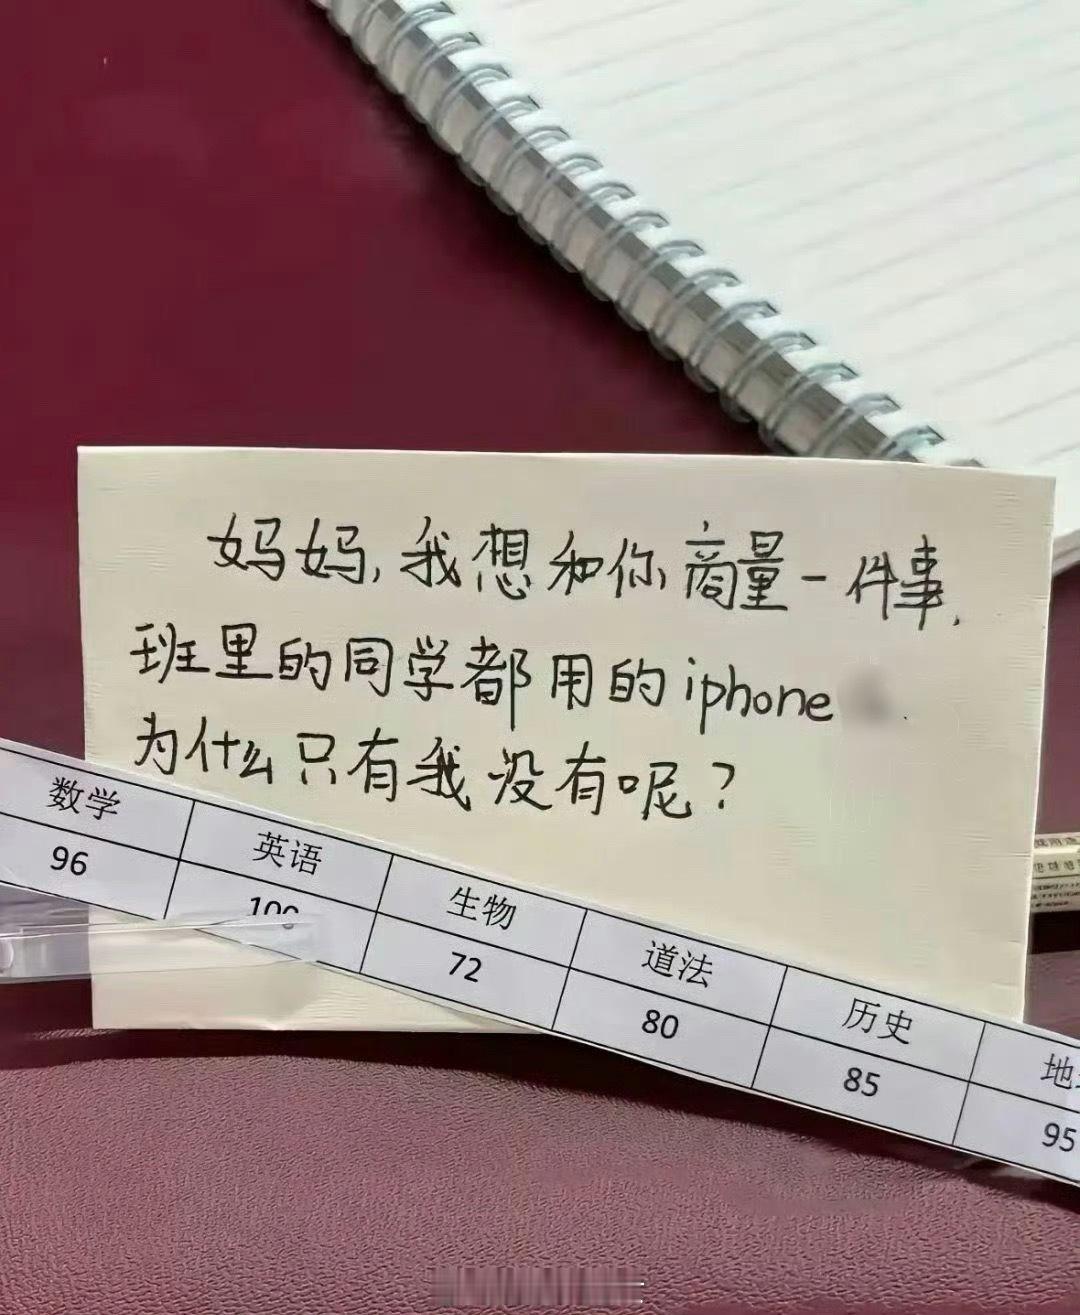 妈妈,我想和你商量一件事.
班里的同学都用的iphone
为什么只有我没有呢?
数学 英语 生物 道法 历史
96 100 72 80 85 95